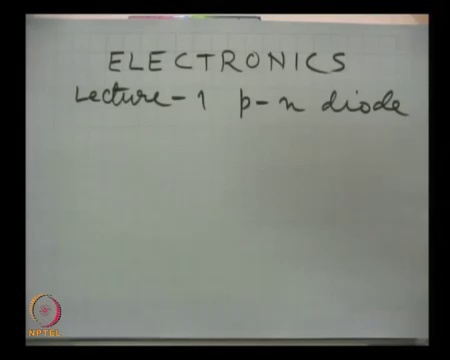 ELECTRONICS
Lecture-1 p-n diode
NPTEL